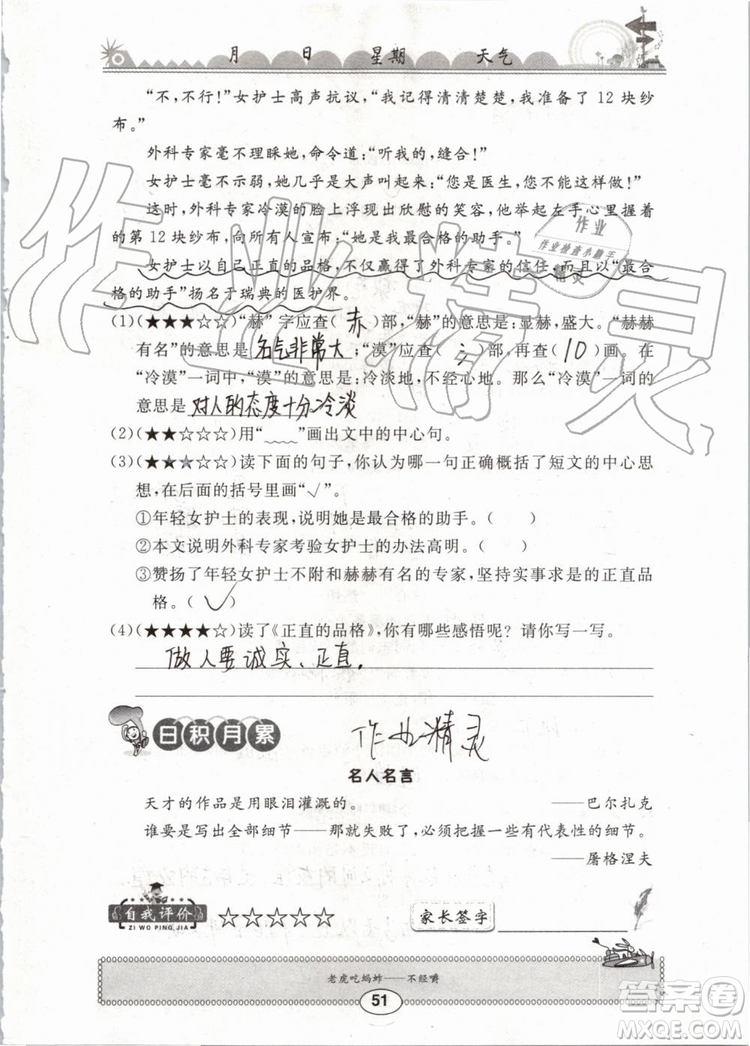 月 日 星期 天气
“不,不行!”女护士高声抗议,“我记得清清楚楚,我准备了 12 块纱
布。”
外科专家毫不理睬她,命令道:“听我的,缝合!”
女护士毫不示弱,她几乎是大声叫起来:“您是医生,您不能这样做!”
这时,外科专家冷漠的脸上浮现出欣慰的笑容,他举起左手心里握着
的第 12 块纱布,向所有人宣布,“她是我最合格的助手。”
女护士以自己正直的品格,不仅赢得了外科专家的信任,而且以“最合
格的助手”扬名于瑞典的医护界。
(1)(★★★☆☆)“赫”字应查( 赤 )部,“赫”的意思是:显赫,盛大。“赫赫
有名”的意思是 名气非常大 ;“漠”应查( 氵 )部,再查( 10 )画。在
“冷漠”一词中,“漠”的意思是:冷淡地,不经心地。那么“冷漠”一词的
意思是 对人的态度十分冷淡
(2)(★★☆☆☆)用“﹏﹏”画出文中的中心句。
(3)(★★★☆☆)读下面的句子,你认为哪一句正确概括了短文的中心思
想,在后面的括号里画“√”。
①年轻女护士的表现,说明她是最合格的助手。( )
②本文说明外科专家考验女护士的办法高明。( )
③赞扬了年轻女护士不附和赫赫有名的专家,坚持实事求是的正直品
格。( √ )
(4)(★★★★☆)读了《正直的品格》,你有哪些感悟呢?请你写一写。
做人要诚实、正直。
日积月累
作业精灵
名人名言
天才的作品是用眼泪灌溉的。 ——巴尔扎克
谁要是写出全部细节——那就失败了,必须把握一些有代表性的细节。
——屠格涅夫
自我评价 ☆☆☆☆☆ 家长签字
ZI WO PING JIA
老虎吃蚂蚱——不经嚼
51
作业精灵
作业
作业检查小助手
精灵
答案卷
MXQE.COM